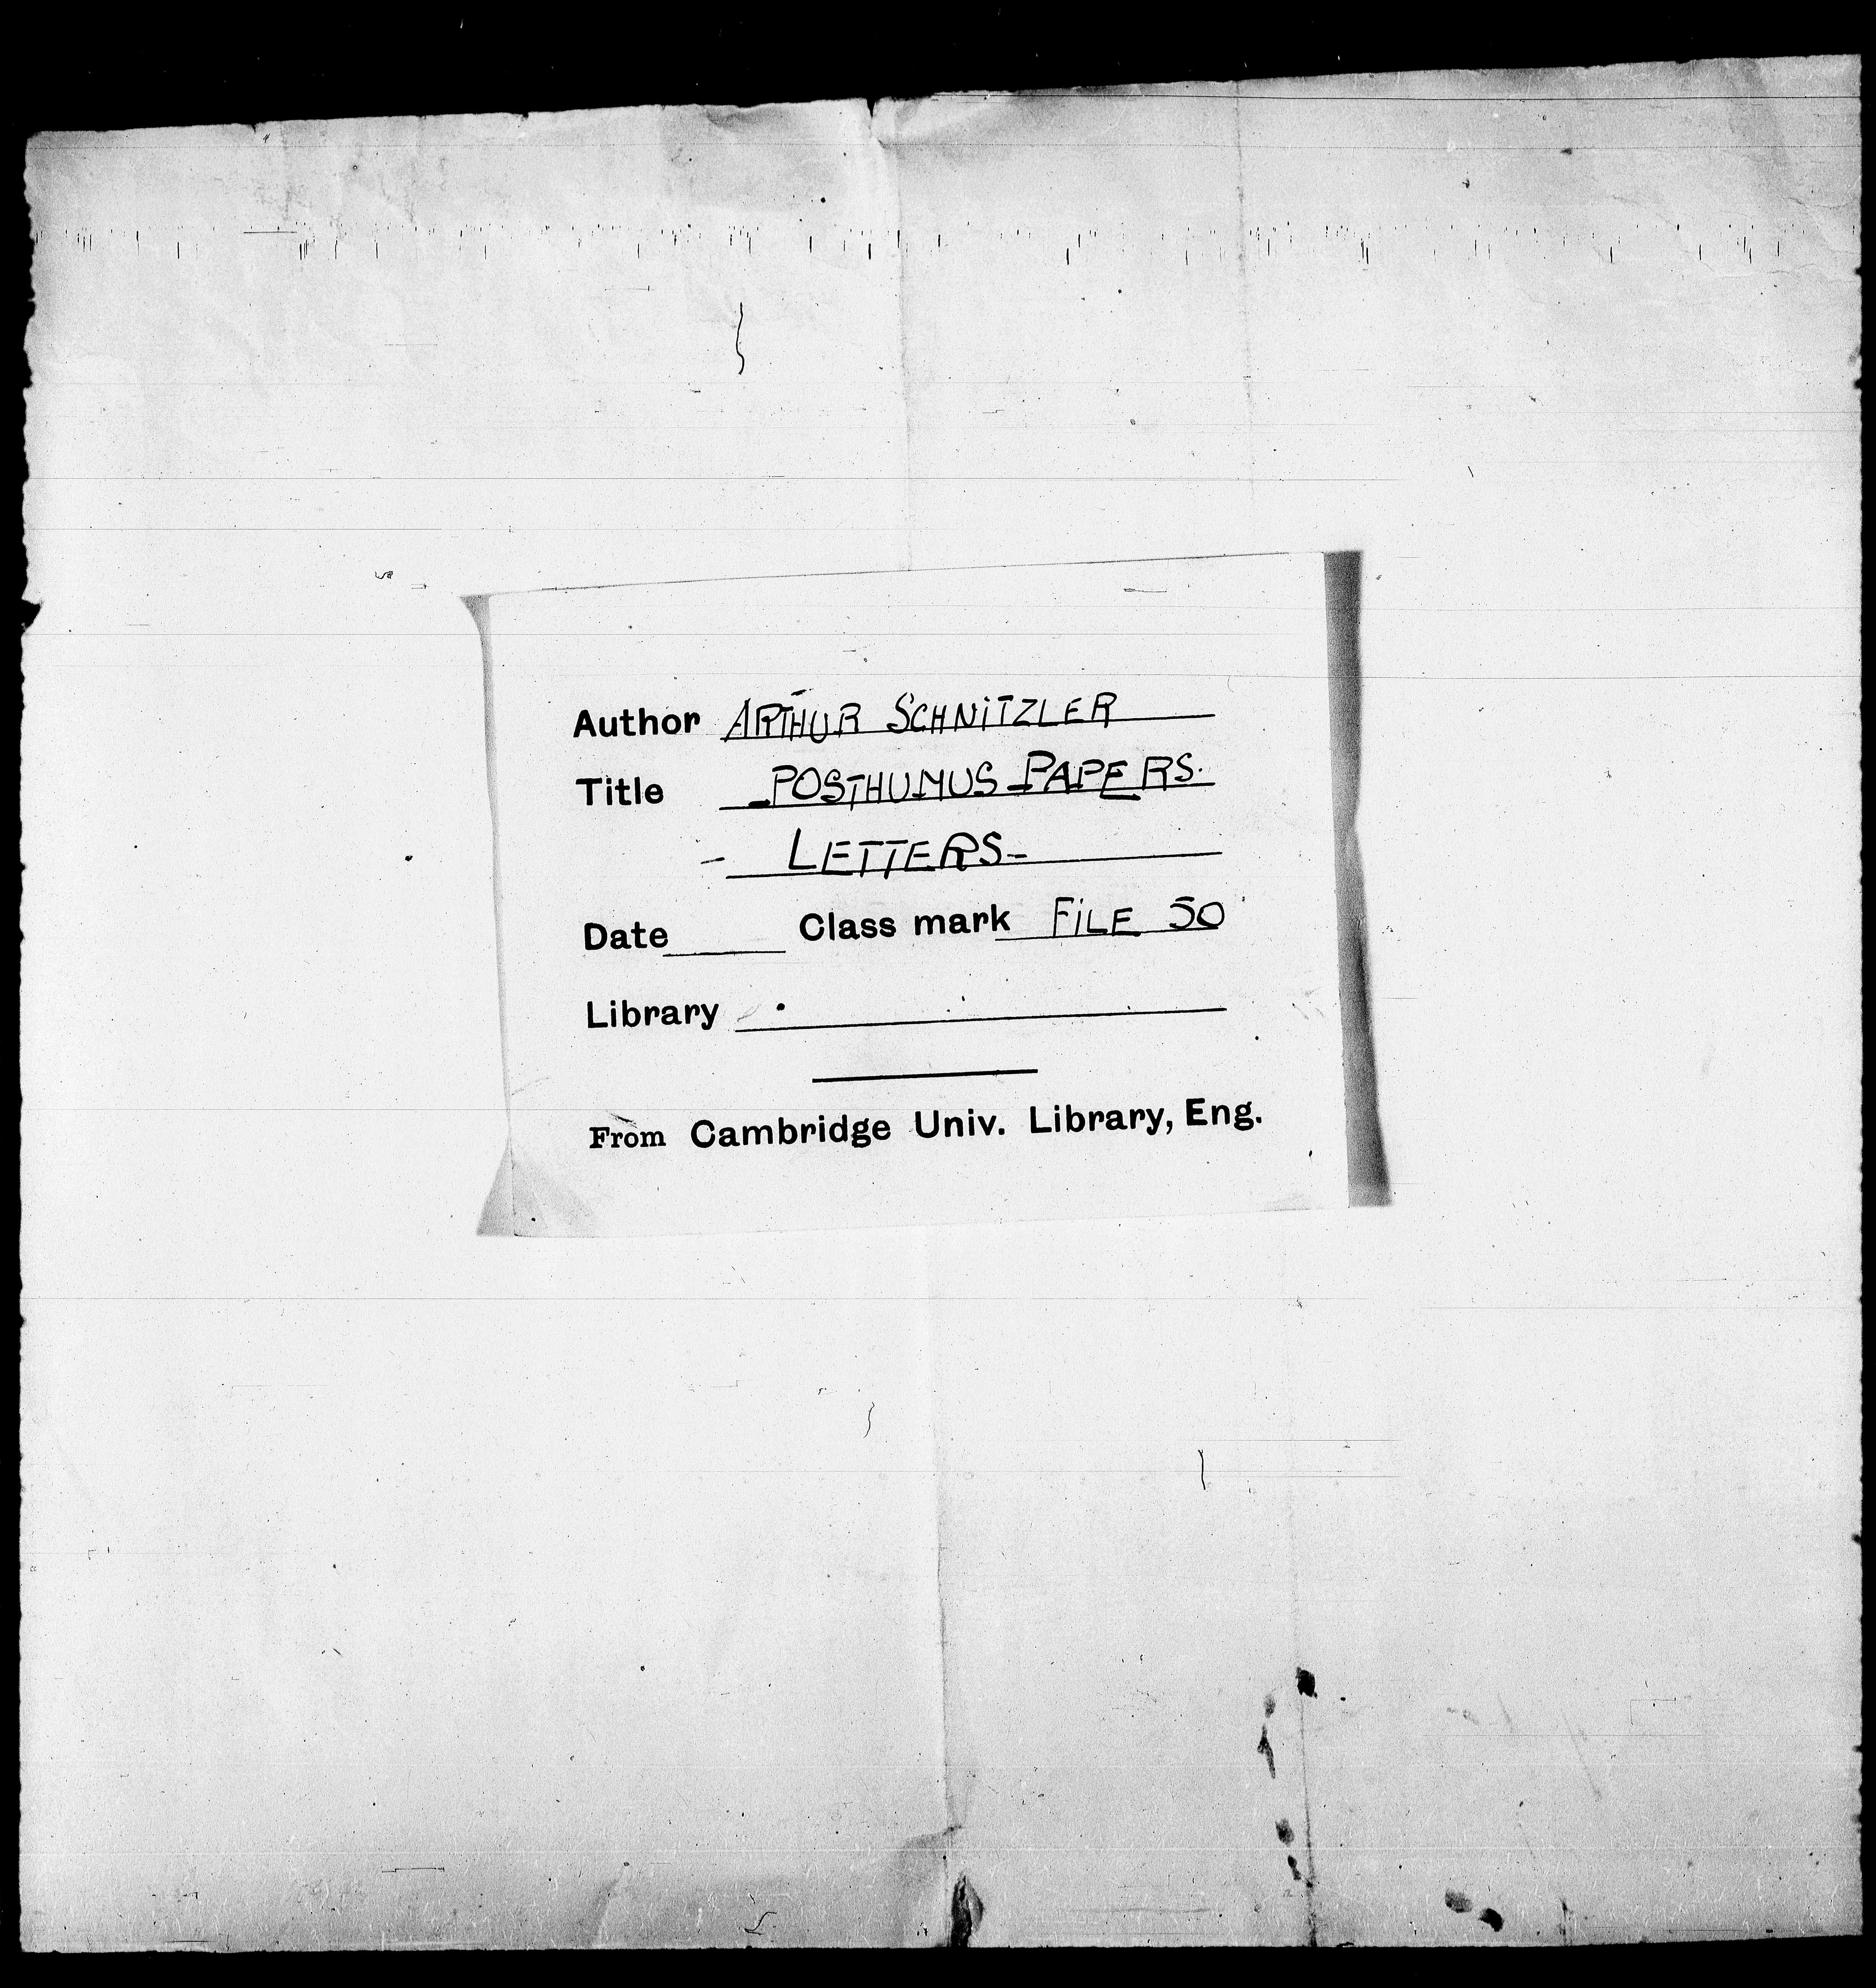 Author ARTHUR SCHNITZLER
Title POSTHUMUS PAPERS.
- LETTERS-
Date Class mark FILE 50
Library
From Cambridge Univ. Library, Eng.